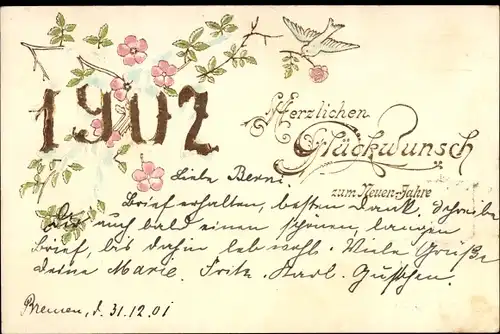 1902
Herzlichen
Glückwunsch
zum Neuen Jahre
Liebe Berni.
Brief erhalten, besten Dank. Schreibe
Dir auch bald einen schönen, langen
Brief, bis dahin leb wohl. Viele Grüße
Deine Marie. Fritz. Karl. Gustchen.
Bremen, d. 31.12.01